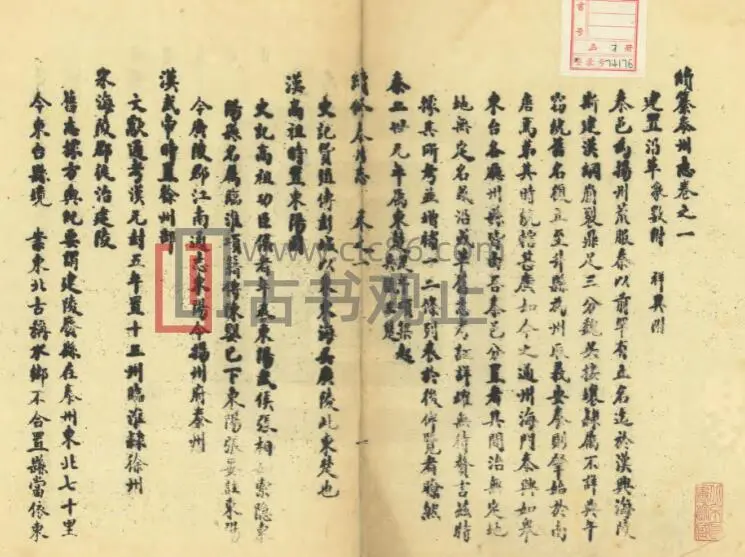 續纂泰州志卷之一
建置沿革象數附 祥異附
泰邑為揚州荒服泰以前罕有立名迄於漢興海陵
新建漢綱廢裂鼎足三分魏吳接壤隸屬不詳典午
唐焉第其時統轄甚廣如今之通州海門泰興如皋
東台各廳州縣皆由吾泰邑分置者其間治無定地
地無定名或沿或革舊志考証詳確無待贅言茲特
據其所考並增補一二條列表於後俾覽者瞭然
秦二世元年屬東楚
續修泰州志 卷之一 一
史記貨殖傳彭城以東東海吳廣陵此東楚也
漢高祖時置東陽郡
史記高祖功臣侯者年表東陽武侯張相 索隱東
陽縣名屬臨淮項籍傳陳嬰已下東陽張晏註東陽
今廣陵郡江南通志東陽今揚州府泰州
漢武帝時置徐州部
文獻通考漢元封五年置十三州臨淮隸徐州
宋海陵郡徙治建陵
舊志據方輿紀要謂建陵廢縣在泰州東北七十里
今東台縣境 案東北古稱水鄉不合置縣當依東
古书观止
www.cic86.com
册
登录号 74176